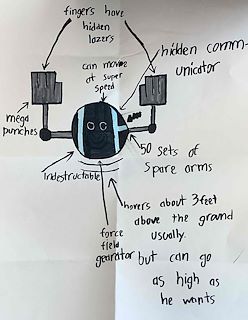 fingers have
hidden
lazers
hidden comm-
unicator
can move
at super
speed
mega
punches
50 sets of
spare arms
indestructable
hovers about 3 feet
above the ground
usually.
but can go
as high as
he wants
force
field
gearator